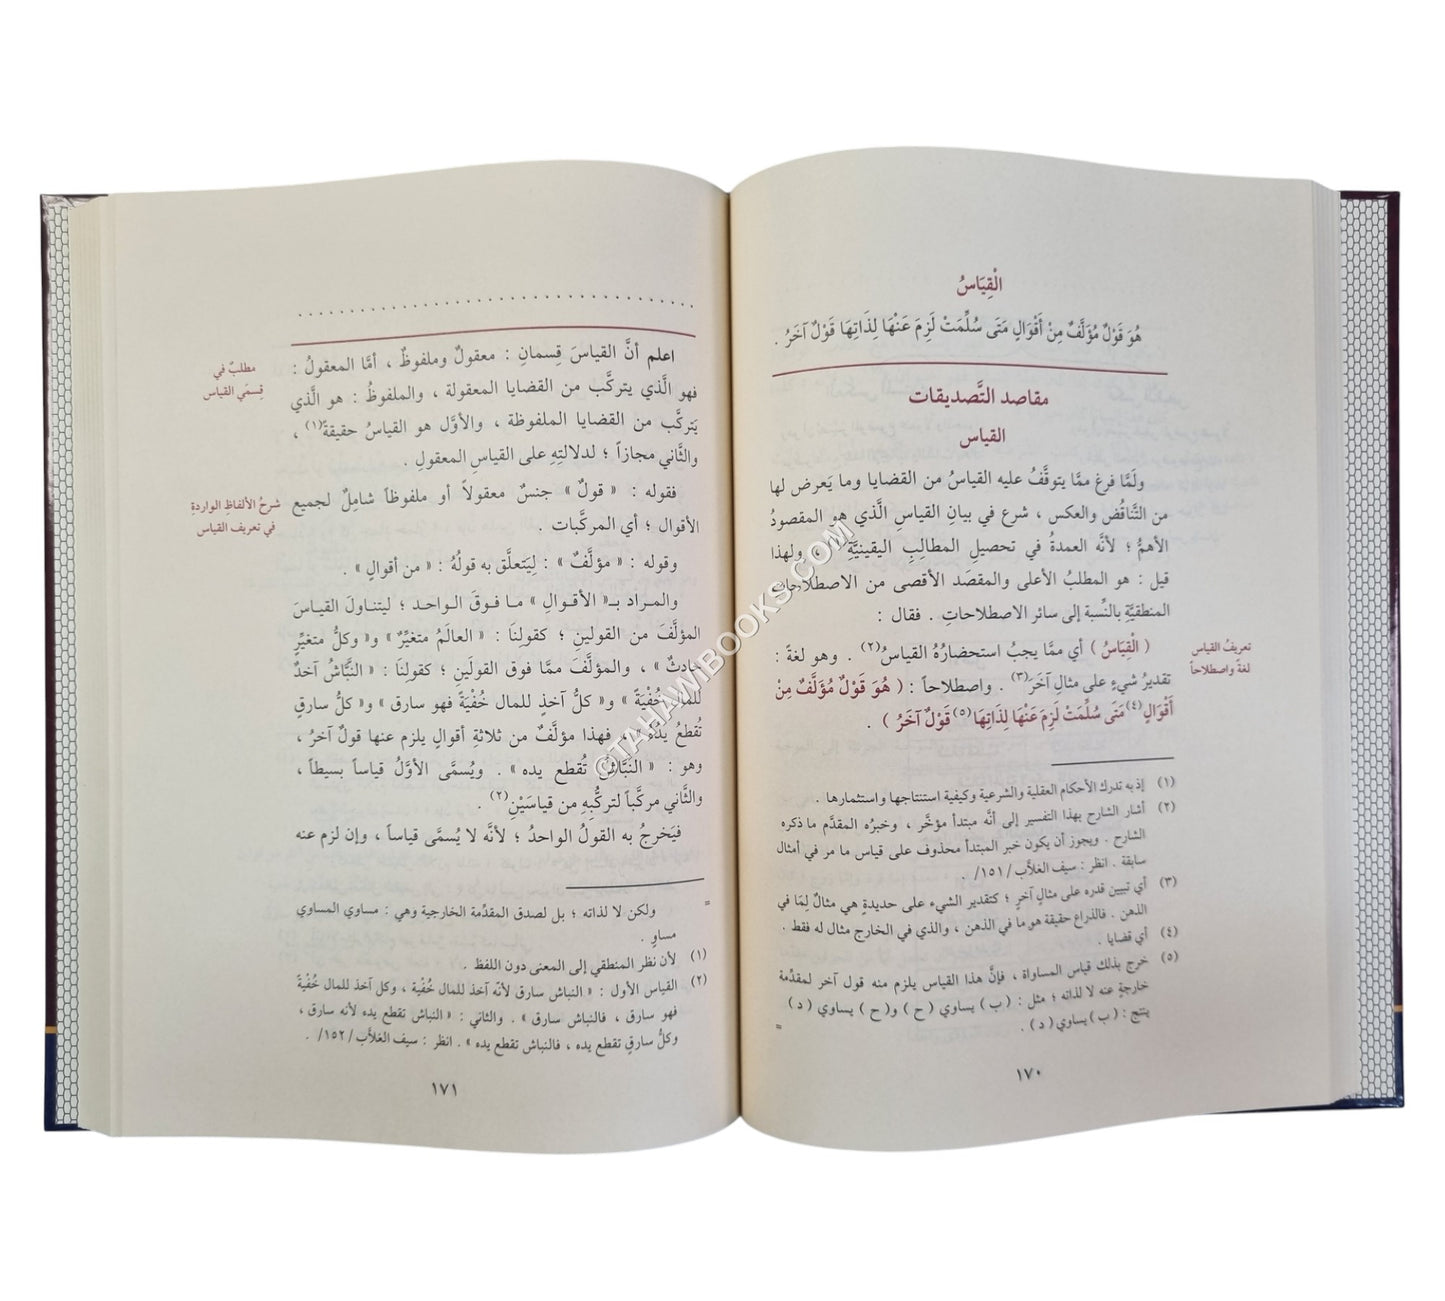 الْقِيَاسُ
هُوَ قَوْلٌ مُؤَلَّفٌ مِنْ أَقْوَالٍ مَتَى سُلِّمَتْ لَزِمَ عَنْهَا لِذَاتِهَا قَوْلٌ آخَرُ .
مقاصد التَّصديقات
القياس
ولَمَّا فرغ ممَّا يتوقَّفُ عليه القياسُ من القضايا وما يَعرض لها
من التَّناقُض والعكس ، شرع في بيان القياسِ الَّذي هو المقصودُ
الأهمُّ ؛ لأنَّه العمدةُ في تحصيلِ المطالِبِ اليقينيَّةِ ، ولهذا
قيل : هو المطلبُ الأعلى والمقصَد الأقصى من الاصطلاحات
المنطقيَّةِ بالنِّسبة إلى سائر الاصطلاحاتِ . فقال :
تعريفُ القياس
لغةً واصطلاحاً
( الْقِيَاسُ ) أي ممَّا يجبُ استحضارُهُ القياسُ(٢) . وهو لغةً :
تقديرُ شيءٍ على مثالِ آخَرَ(٣) . واصطلاحاً : ( هُوَ قَوْلٌ مُؤَلَّفٌ مِنْ
أَقْوَالٍ(٤) مَتَى سُلِّمَتْ لَزِمَ عَنْهَا لِذَاتِهَا(٥) قَوْلٌ آخَرُ ) .
(١) إذ به تدرك الأحكام العقلية والشرعية وكيفية استنتاجها واستثمارها .
(٢) أشار الشارح بهذا التفسير إلى أنَّه مبتدأ مؤخَّر ، وخبرُه المقدَّم ما ذكره
الشارح . ويجوز أن يكون خبر المبتدأ محذوف على قياس ما مر في أمثال
سابقة . انظر : سيف الغلَّاب /١٥١/ .
(٣) أي تبيين قدره على مثالٍ آخر ؛ كتقدير الشيء على حديدةٍ هي مثالٌ لِمَا في
الذهن . فالذراع حقيقة هو ما في الذهن ، والذي في الخارج مثال له فقط .
(٤) أي قضايا .
(٥) خرج بذلك قياس المساواة ، فإنَّ هذا القياس يلزم منه قول آخر لمقدِّمة
خارجةٍ عنه لا لذاته ؛ مثل : ( ب ) يساوي ( ح ) و( ح ) يساوي ( د )
ينتج : ( ب ) يساوي ( د ) .
=
١٧٠
. . . . . . . . . . . . . . . . . . . . . . . . . . . . . . . . . . . .
مطلبٌ في
قِسمَي القياس
اعلم أنَّ القياسَ قِسمانِ : معقولٌ وملفوظٌ ، أمَّا المعقولُ :
فهو الَّذي يتركَّب من القضايا المعقولة ، والملفوظُ : هو الَّذي
يَتركَّب من القضايا الملفوظة ، والأوَّل هو القياسُ حقيقةً(١) ،
والثَّاني مجازاً ؛ لدلالتِهِ على القياسِ المعقولِ .
شرحُ الألفاظِ الواردةِ
في تعريف القياس
فقوله : « قولٌ » جنسٌ معقولاً أو ملفوظاً شاملٌ لجميع
الأقوال ؛ أي المركَّبات .
وقوله : « مؤلَّفٌ » : لِيَتعلَّق به قولُهُ : « من أقوالٍ » .
والمراد بـ« الأقوالِ » ما فوقَ الواحد ؛ ليتناولَ القياسَ
المؤلَّفَ من القولينِ ؛ كقولِنَا : « العالَمُ متغيِّرٌ » و« كلُّ متغيِّرٍ
حادثٌ » ، والمؤلَّفَ ممَّا فوق القولَينِ ؛ كقولنَا : « النَّبَّاشُ آخذٌ
للمال خُفْيَةً » و« كلُّ آخذٍ للمال خُفْيَةً فهو سارق » و« كلُّ سارقٍ
تُقطَعُ يدُه » ، فهذا مؤلَّفٌ من ثلاثةِ أقوالٍ يلزم عنها قولٌ آخرُ ،
وهو : « النَّبَّاش تُقطع يده » . ويُسمَّى الأوَّلُ قياساً بسيطاً ،
والثَّاني مركَّباً لتركُّبِهِ من قياسَيْنِ(٢) .
فيَخرجُ به القولُ الواحدُ ؛ لأنَّه لا يُسمَّى قياساً ، وإن لزم عنه
=
ولكن لا لذاته ؛ بل لصدق المقدِّمة الخارجية وهي : مساوي المساوي
مساوٍ .
(١) لأن نظر المنطقي إلى المعنى دون اللفظ .
(٢) القياس الأول : « النباش سارق لأنه آخذ للمال خُفْية ، وكل آخذ للمال خُفْيةً
فهو سارق ، فالنباش سارق » . والثاني : « النباش تقطع يده لأنه سارق ،
وكلُّ سارقٍ تقطع يده ، فالنباش تقطع يده » . انظر : سيف الغلَّاب /١٥٢/ .
١٧١
©TAHAWIBOOKS.COM